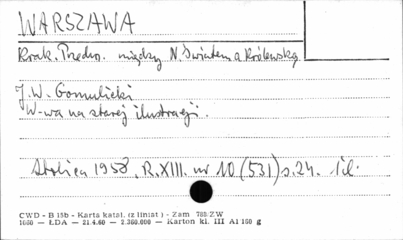 WARSZAWA
Krak. Przedm. między N. Światem a Królewską
J. W. Gomulicki
W-wa na starej ilustracji.
Stolica 1958, R.XIII. nr 10 (531) s.24. il.
CWD - B 15b - Karta katal. (z liniat.) - Zam 785/ZW
1650 — ŁDA — 21.4.60 — 2.360.000 — Karton kl. III A1 160 g